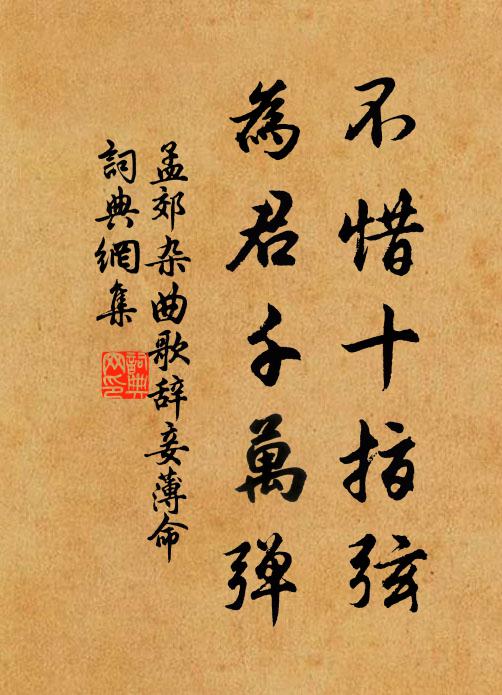 不惜十指弦
為君千萬彈
孟郊杂曲歌辞妾薄命
詞典網集
詞典
网印